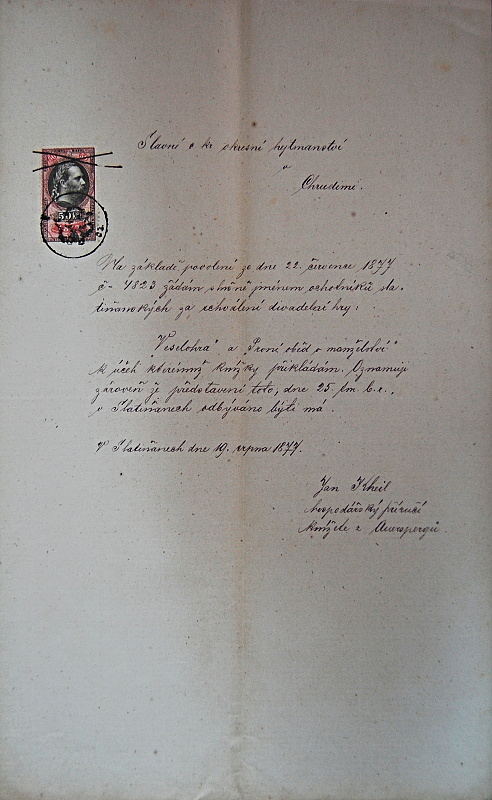 Slavní c kr okresní hejtmanství
v
Chrudimi.
50
Na základě povolení ze dne 22. července 1877
č. 4823 žádám slušně jménem ochotníků sla-
tiňanských za schválení divadelní hry:
"Veselohra" a "První oběd v manželství"
k účeli kterémuž knížky přikládám. Oznamuji
zároveň že představení toto, dne 25. t.m. b.r.,
v Slatiňanech odbýváno býti má.
V Slatiňanech dne 19. srpna 1877.
Jan Kheil
hospodářský příručí
knížete z Auerspergů